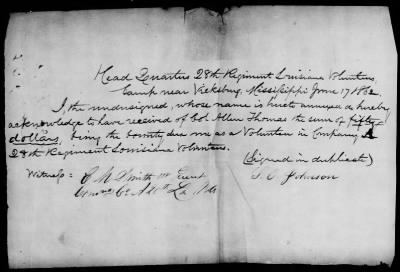 Head Quarters 28th Regiment Louisiana Volunteers
Camp near Vicksburg, Mississippi June 17 1862.
I, the undersigned, whose name is hereto annexed do hereby
acknowledge to have received of Col Allen Thomas the sum of fifty
dollars, being the bounty due me as a Volunteer in Company A
28th Regiment Louisiana Volunteers.
(Signed in duplicate)
Witness: Smith
Johnson